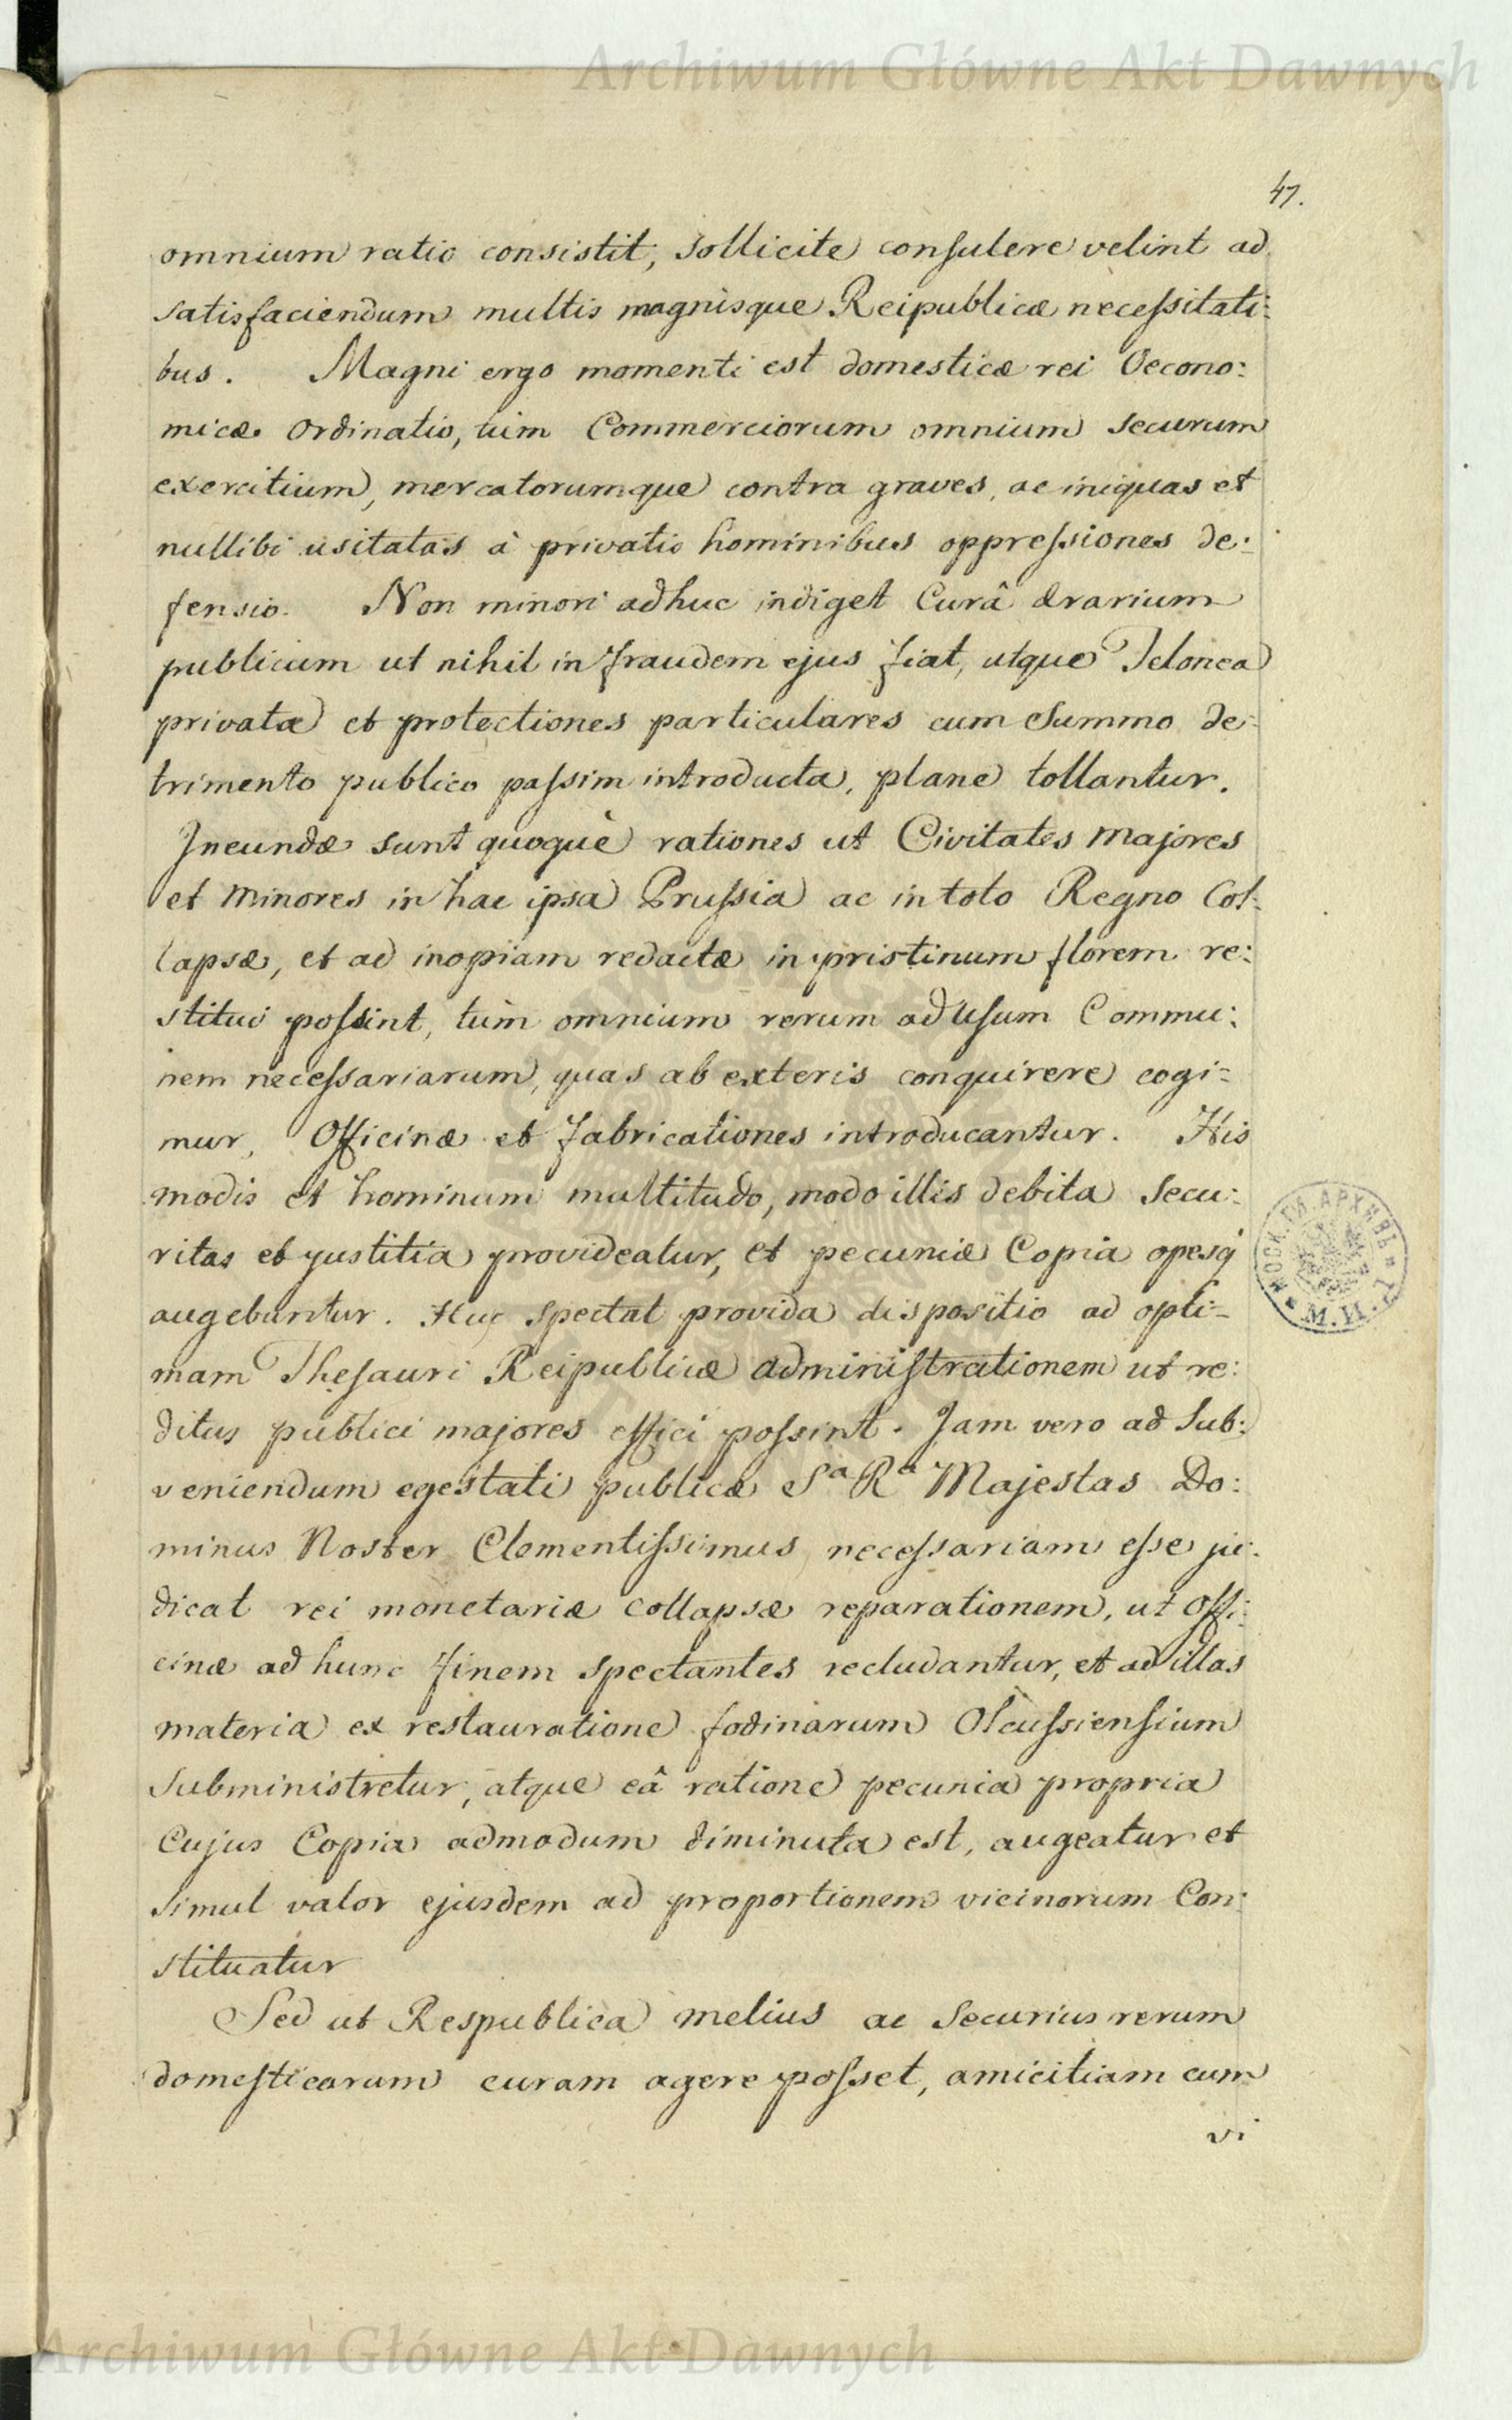 Archiwum Główne Akt Dawnych
47.
omnium ratio consistit, sollicite consulere velint ad
satisfaciendum multis magnisque Reipublicæ necessitati:
bus. Magni ergo momenti est domesticæ rei Oecono:
micæ Ordinatio, tùm Commerciorum omnium securum
exercitium, mercatorumque contra graves, ac iniquas et
nullibi usitatas à privatis hominibus oppressiones de:
fensio. Non minori adhuc indiget Curâ ærarium
publicum ut nihil in fraudem ejus fiat, utque Telonea
privata et protectiones particulares cum Summo de:
trimento publico passim introducta, plane tollantur.
Ineundæ sunt quoquè rationes ut Civitates Majores
et Minores in hac ipsa Prussia ac in toto Regno Col:
lapsæ, et ad inopiam redactæ in pristinum florem re:
stitui possint, tùm omnium rerum ad Usum Commu:
nem necessariarum, quas ab exteris conquirere cogi:
mur, Officinæ et fabricationes introducantur. His
modis et hominum multitudo, modo illis debita Secu:
ritas et justitia provideatur, et pecuniæ Copia opesq
augebuntur. Huc spectat provida dispositio ad opti:
mam Thesauri Reipublicæ administrationem ut re:
ditus publici majores effici possint. Jam vero ad Sub:
veniendum egestati publicæ Sᵃ Rᵃ Majestas Do:
minus Noster Clementissimus necessariam esse ju:
dicat rei monetariæ collapsæ reparationem, ut Offi:
cinæ ad hunc finem spectantes recludantur, et ad illas
materia ex restauratione fodinarum Olcussiensium
Subministretur, atque eâ ratione pecunia propria
Cujus Copia admodum diminuta est, augeatur et
simul valor ejusdem ad proportionem vicinorum Con:
stituatur
Sed ut Respublica melius ac Securius rerum
domesticarum curam agere posset, amicitiam cum
vi
МОСК. ГЛ. АРХИВЪ
М. И. Д.
Archiwum Główne Akt Dawnych